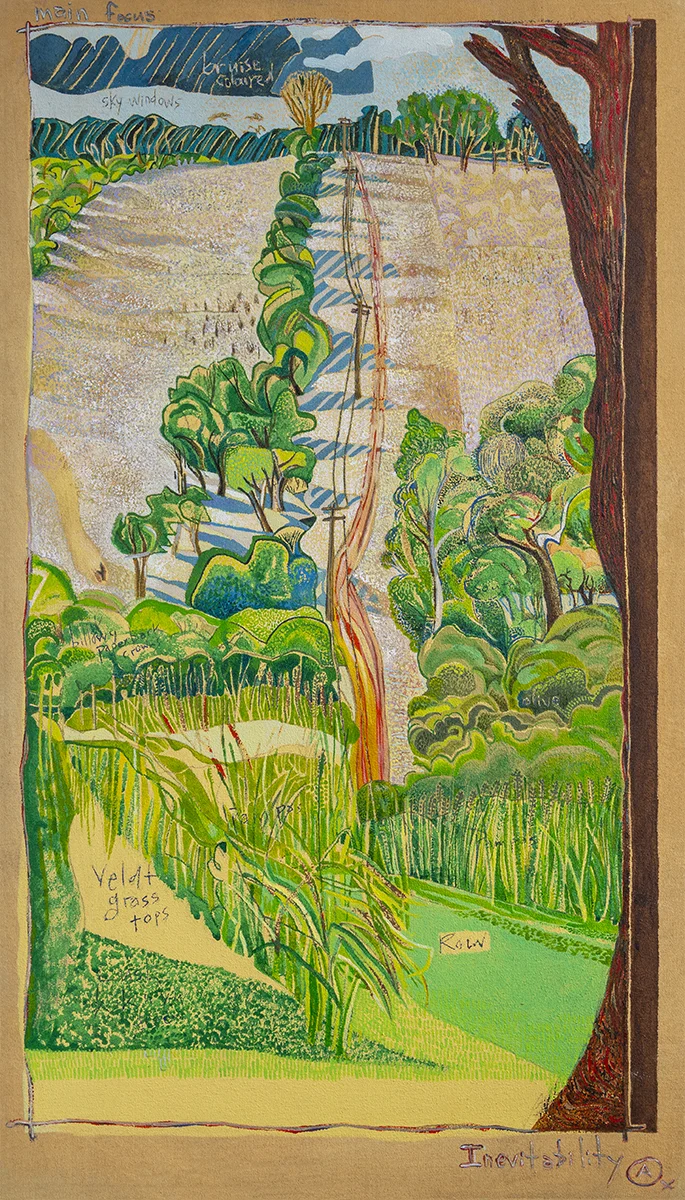 main focus
bruise
coloured
sky windows
billowy
olive
Veldt
grass
tops
Raw
Inevitability
A